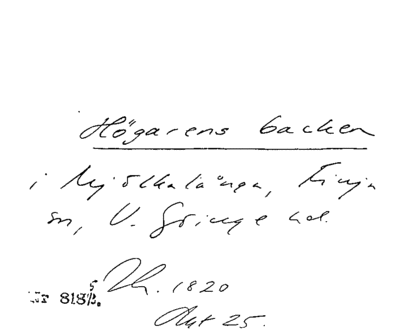 Högarens backen
i Mjölkalånga, Finja
sn, V. Göinge hd.
1820
Nr 818
Akt 25.